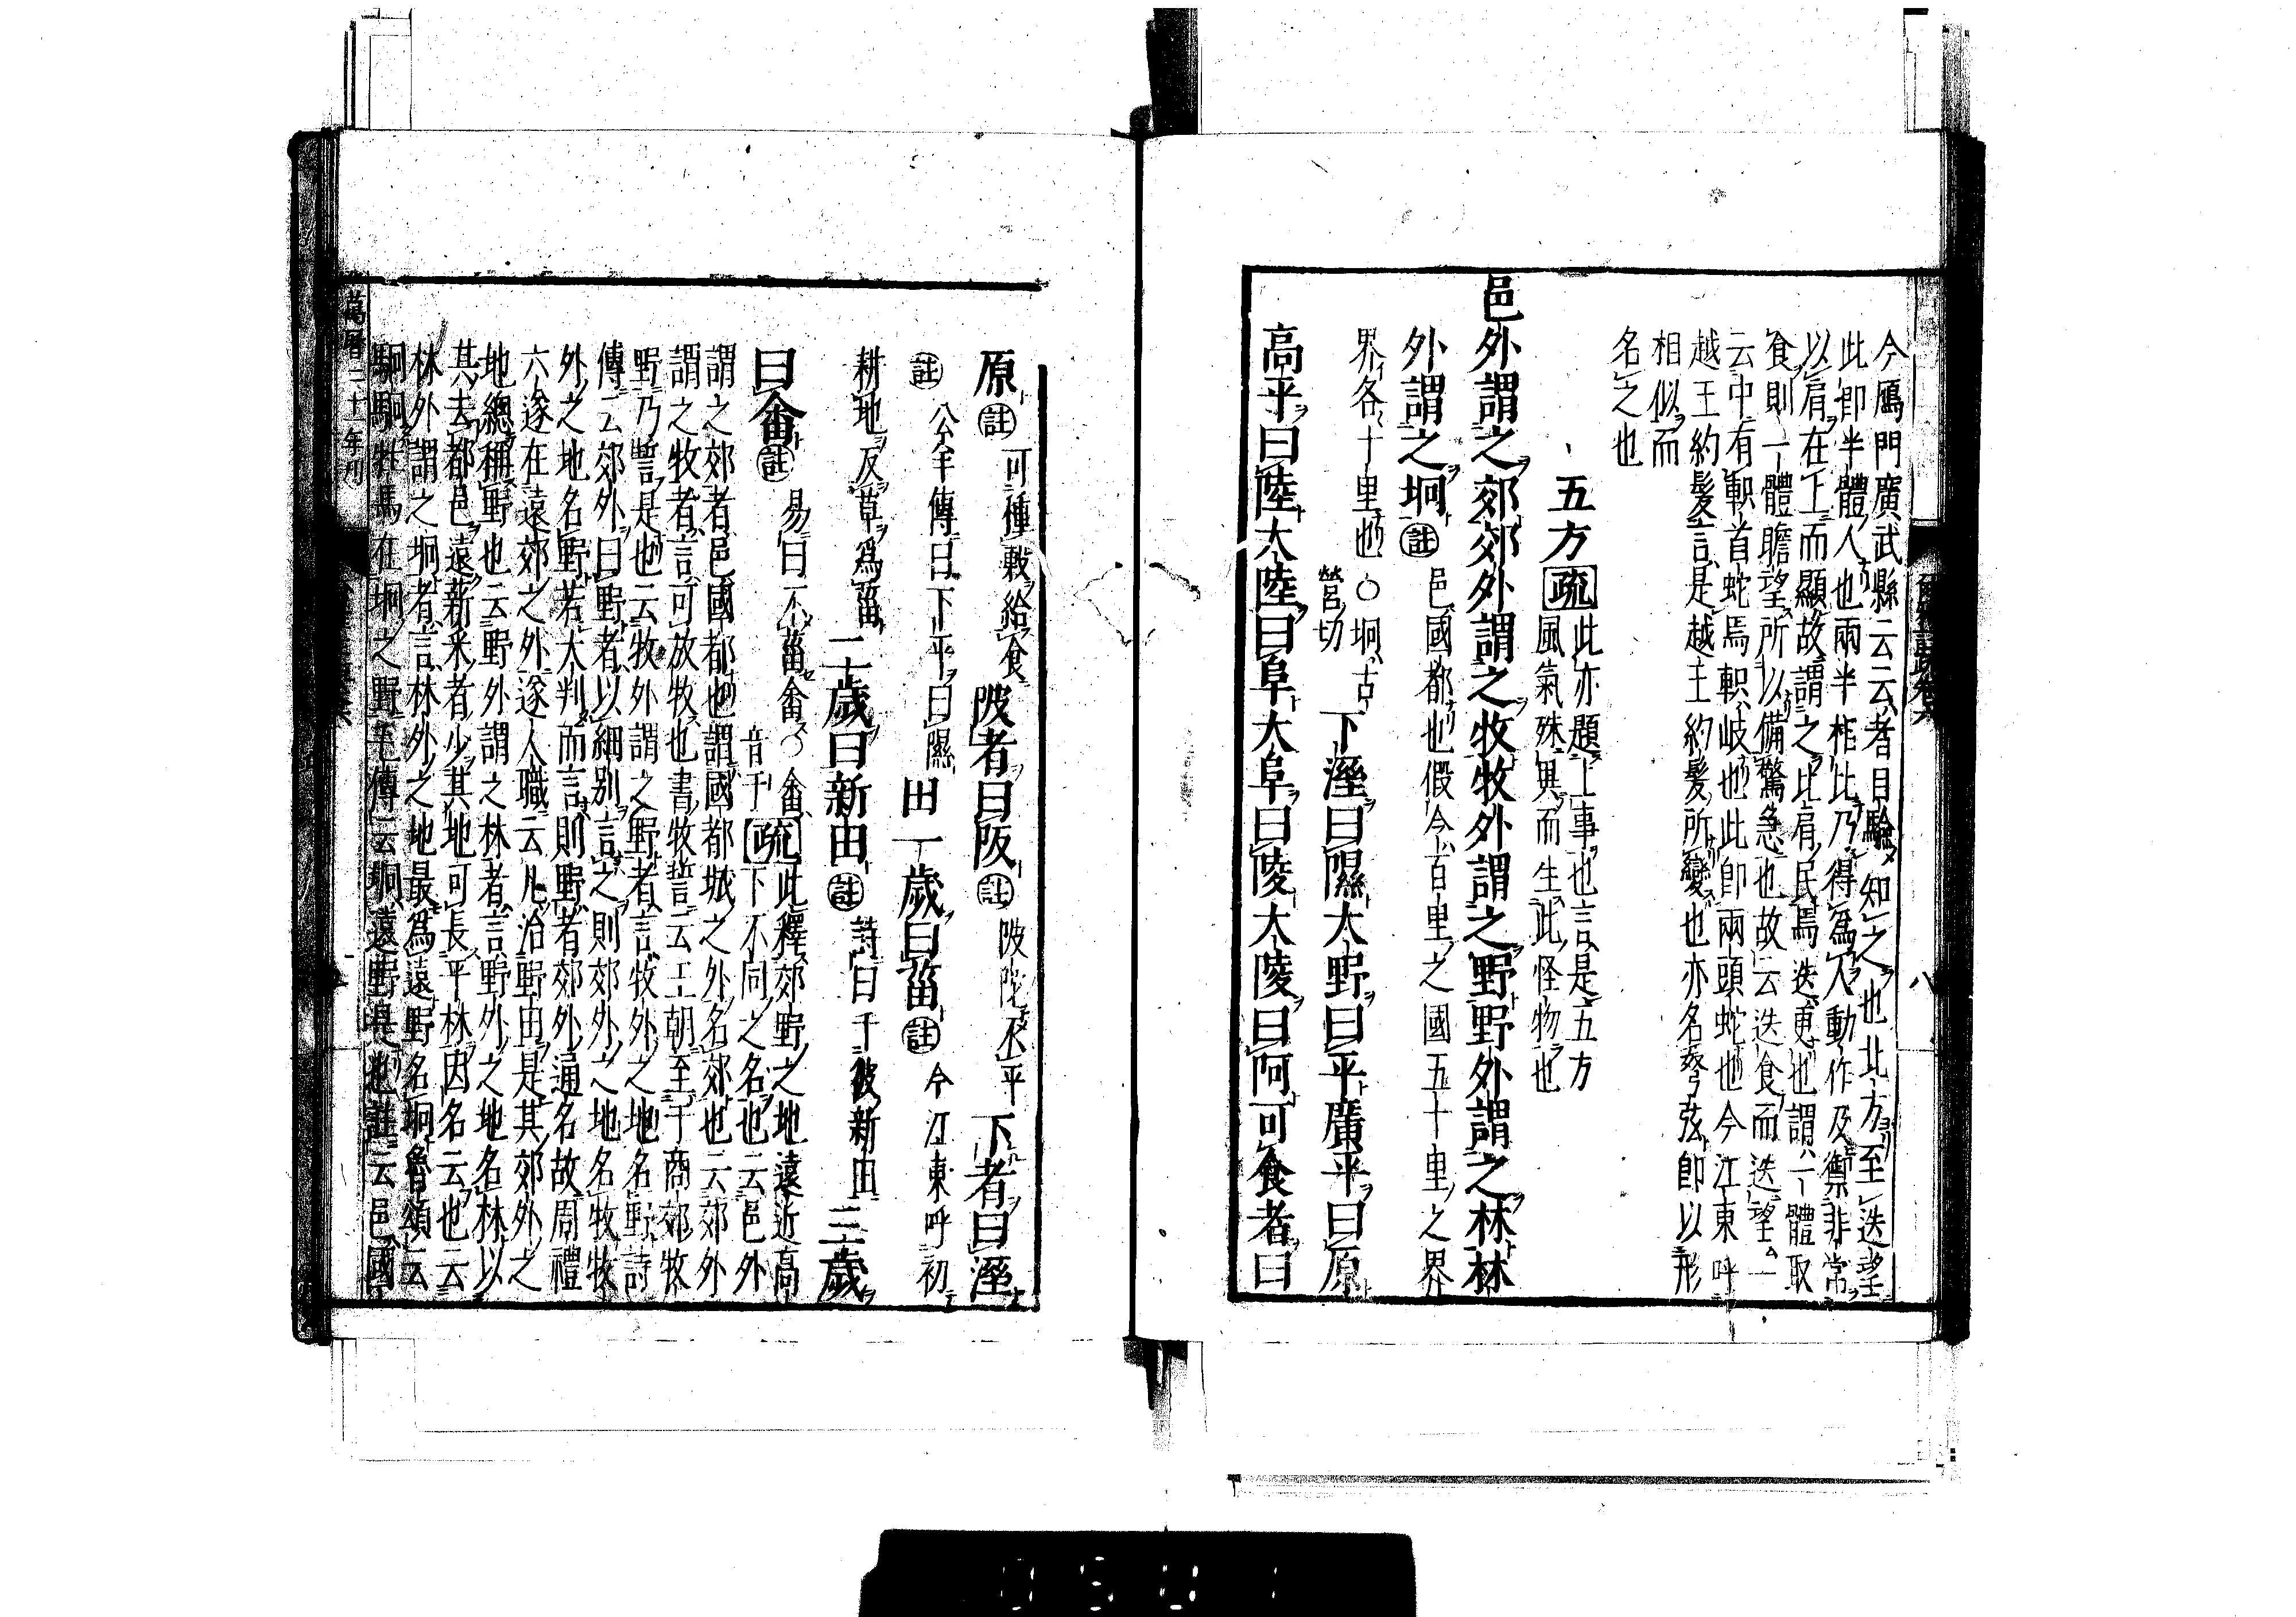 爾雅註疏卷六
八
今鴈門廣武縣云云者目驗知之也北方至迭望
此即半體人也兩半相比乃得爲人動作及禦非常
以肩在上而顯故謂之比肩民焉迭更也謂一體取
食則一體瞻望所以備驚急也故云迭食而迭望一
云中有軹首蛇焉軹岐也此即兩頭蛇也今江東呼
越王約髮言是越王約髮所變也亦名弩弦即以形
相似而
名之也
五方疏此亦題上事也言是五方
風氣殊異而生此怪物也
邑外謂之郊郊外謂之牧牧外謂之野野外謂之林林
外謂之坰註邑國都也假令百里之國五十里之界
界各十里也○坰古
營切
下溼曰隰大野曰平廣平曰原
高平曰陸大陸曰阜大阜曰陵大陵曰阿可食者曰
原註可種穀給食陂者曰阪註陂陀不平下者曰溼
註公羊傳曰下平曰隰田一歲曰菑註今江東呼初
耕地反草爲菑二歲曰新田註詩曰于彼新田三歲
曰畬註易曰不菑畬○畬
音于疏此釋郊野之地遠近高
下不同之名也云邑外
謂之郊者邑國都也謂國都城之外名郊也云郊外
謂之牧者言可放牧也書牧誓云王朝至于商郊牧
野乃誓是也云牧外謂之野者言牧外之地名野詩
傳云郊外曰野者以細別言之則郊外之地名牧牧
外之地名野若大判而言則野者郊外通名故周禮
六遂在遠郊之外遂人職云凡治野田是其郊外之
地總稱野也云野外謂之林者言野外之地名林以
其去都邑遠薪采者少其地可長平林因名云也云
林外謂之坰者言林外之地最爲遠野名坰魯頌云
駉駉牡馬在坰之野毛傳云坰遠野是也註云邑國
萬曆二十年刊